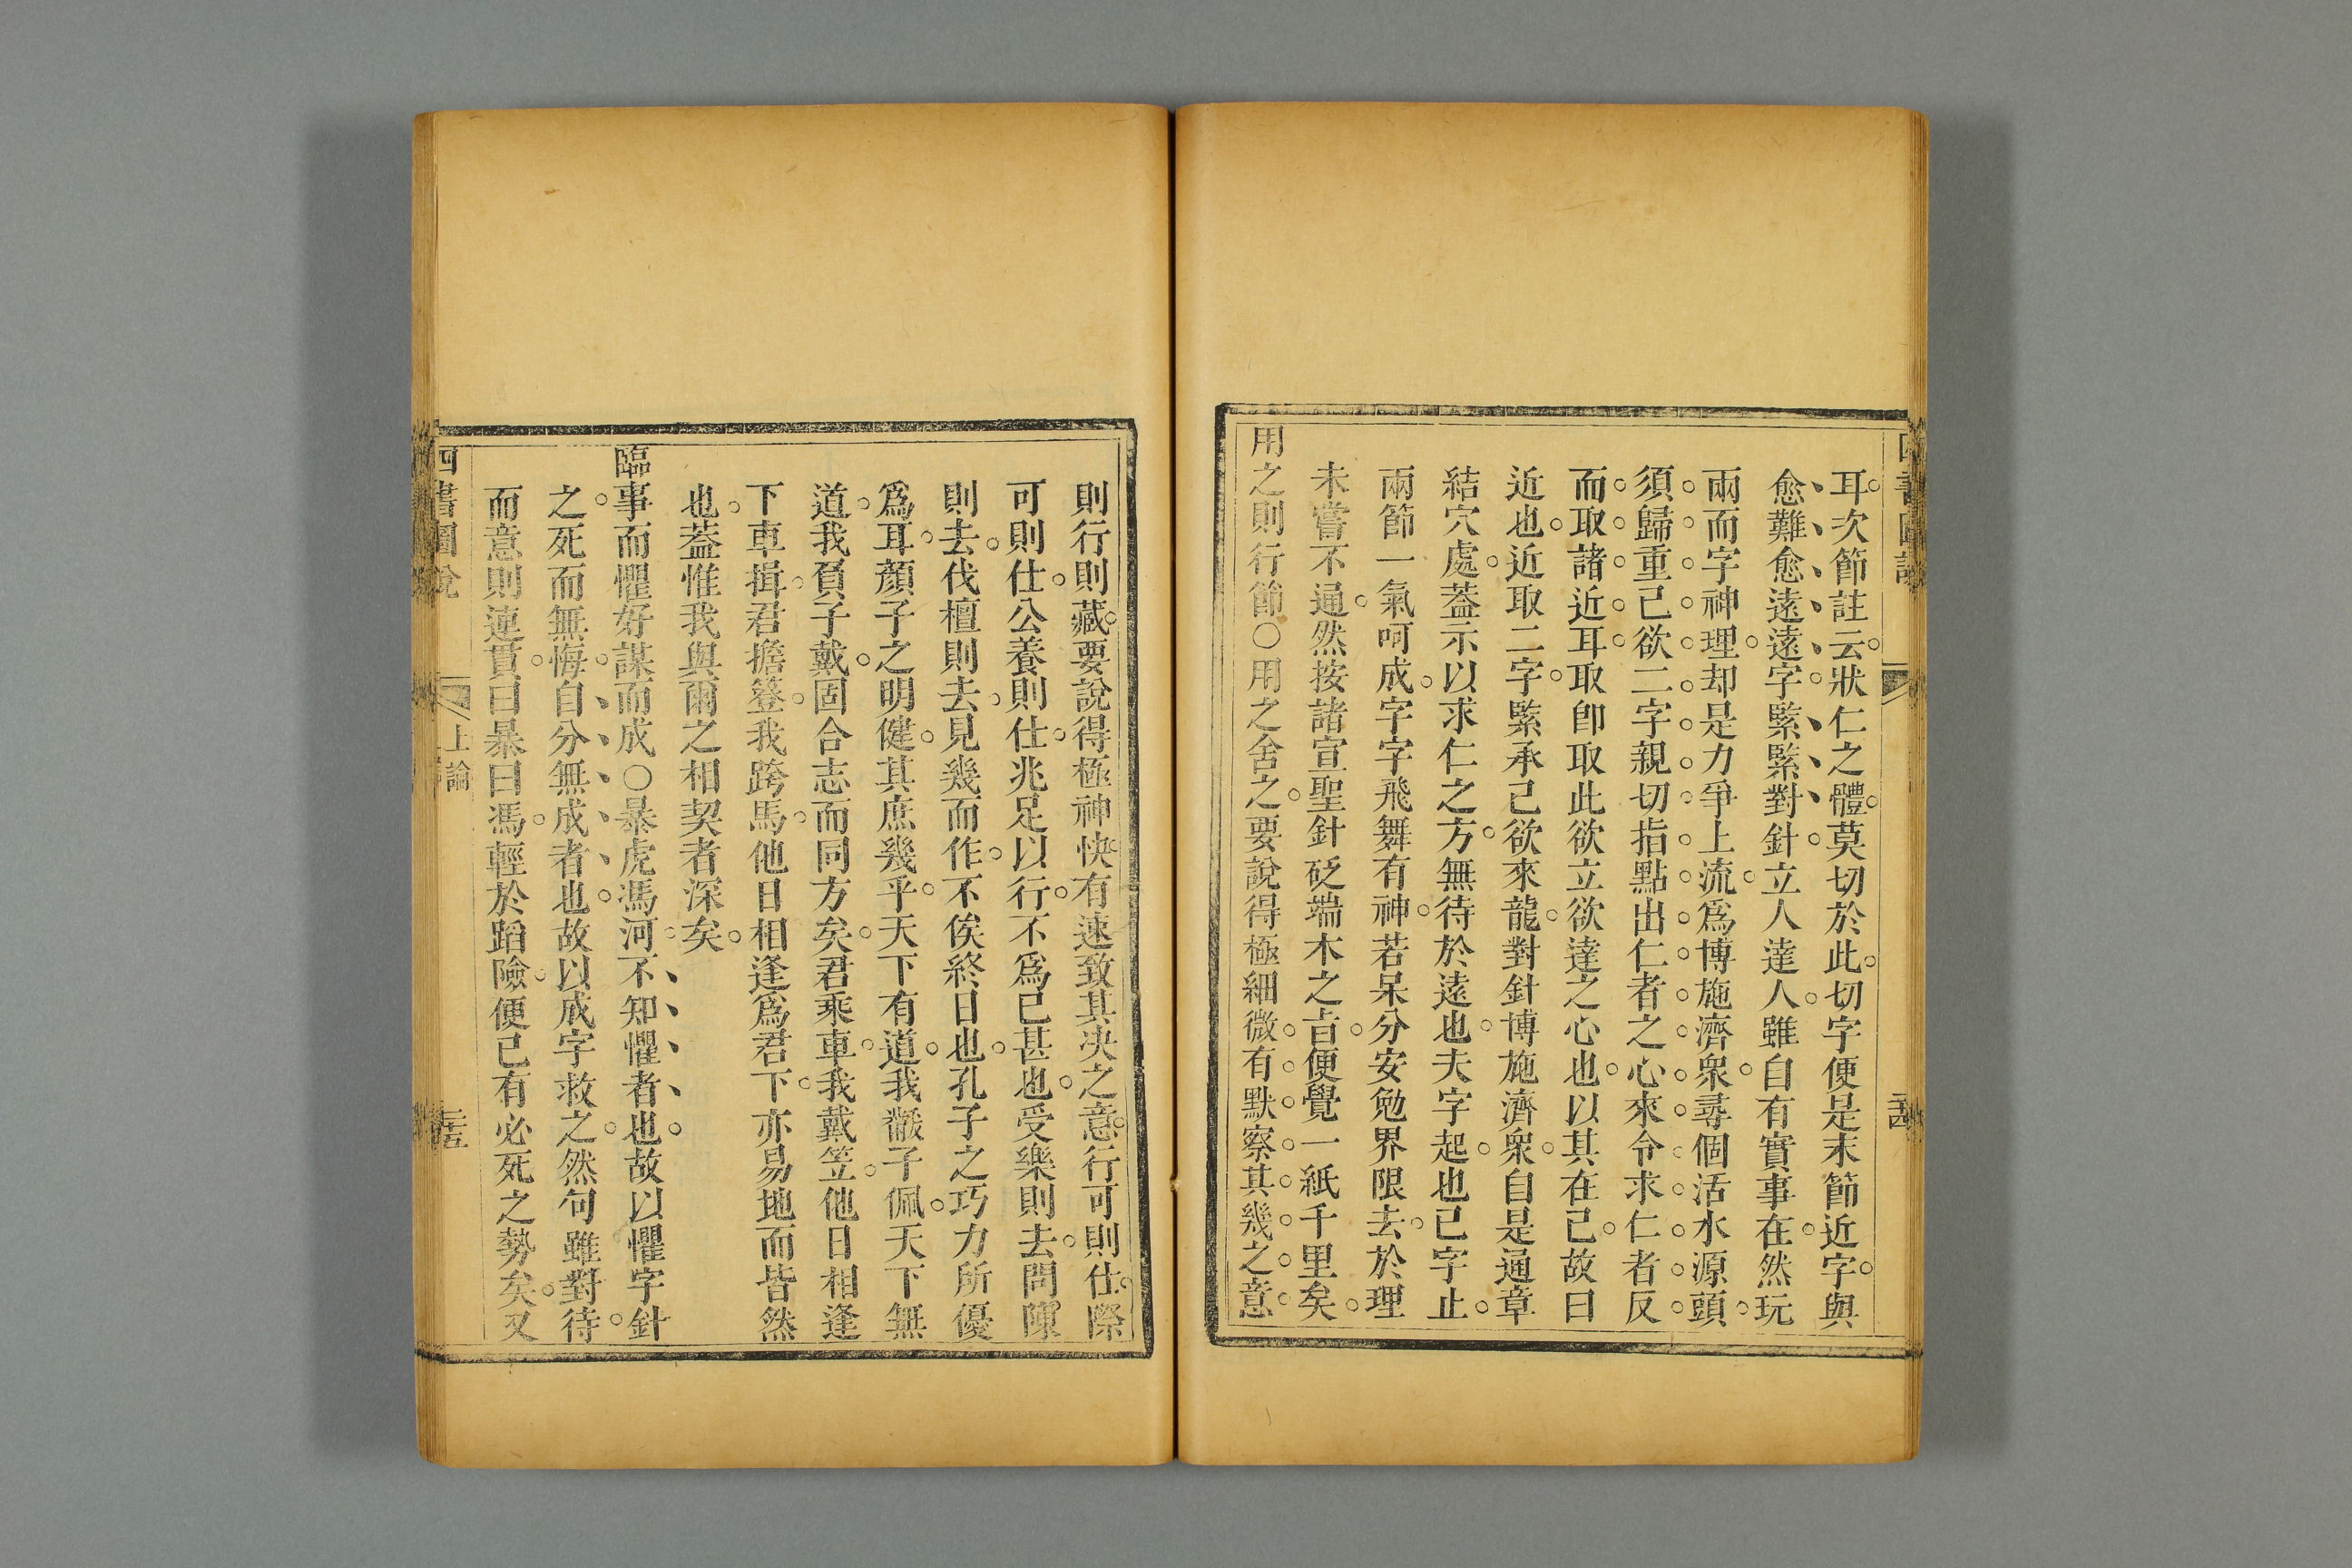 耳次節註云狀仁之體莫切於此切字便是末節近字與
愈難愈遠遠字緊緊對針立人達人雖自有實事在然玩
兩而字神理却是力爭上流爲博施濟衆尋個活水源頭
須歸重己欲二字親切指點出仁者之心來令求仁者反
而取諸近耳取卽取此欲立欲達之心也以其在己故曰
近也近取二字緊承己欲來龍對針博施濟衆自是通章
結穴處葢示以求仁之方無待於遠也夫字起也已字止
兩節一氣呵成字字飛舞有神若呆分安勉界限去於理
未嘗不通然按諸宣聖針砭端木之旨便覺一紙千里矣
用之則行節○用之舍之要說得極細微有默察其幾之意
二十四
則行則藏要說得極神快有速致其决之意行可則仕際
可則仕公養則仕兆足以行不爲已甚也受樂則去問陳
則去伐檀則去見幾而作不俟終日也孔子之巧力所優
爲耳顏子之明健其庶幾乎天下有道我黻子佩天下無
道我負子戴固合志而同方矣君乘車我戴笠他日相逢
下車揖君擔簦我跨馬他日相逢爲君下亦易地而皆然
也葢惟我與爾之相契者深矣
臨事而懼好謀而成○暴虎馮河不知懼者也故以懼字針
之死而無悔自分無成者也故以成字救之然句雖對待
而意則連貫曰暴曰馮輕於蹈險便已有必死之勢矣又
四書圖說
上論
二十五